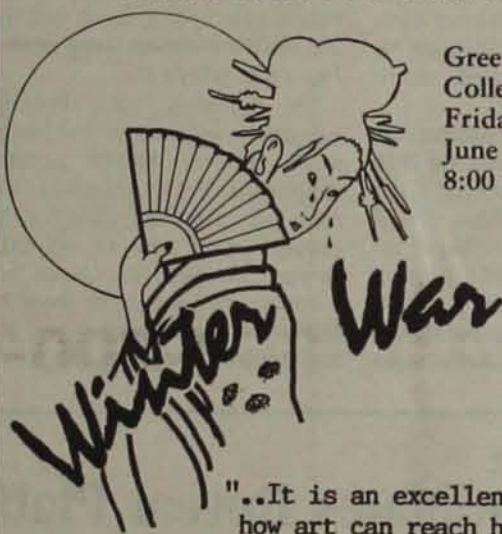 Gree
Colle
Frida
June
8:00
Winter War
"..It is an excellen
how art can reach h